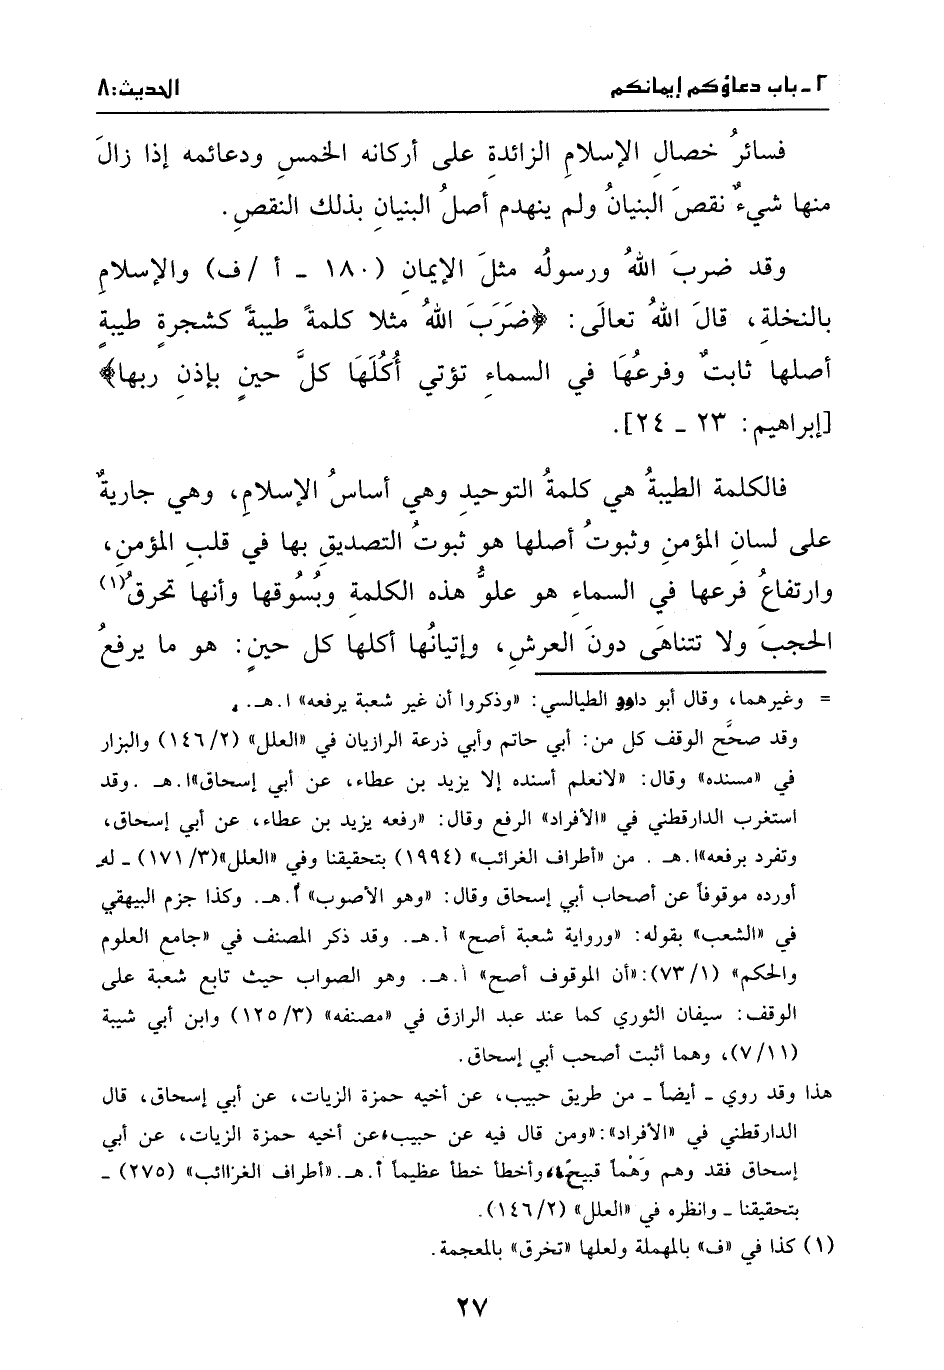 ٢ - باب دعاؤكم إيمانكم الحديث: ٨
فسائرُ خصالِ الإسلامِ الزائدةِ على أركانه الخمسِ ودعائمه إذا زالَ
منها شيءٌ نقصَ البنيانُ ولم ينهدم أصلُ البنيانِ بذلك النقصِ.
وقد ضربَ اللهُ ورسولُه مثلَ الإيمانِ (١٨٠ - أ /ف) والإسلامِ
بالنخلةِ، قالَ اللهُ تعالَى: ﴿ضَرَبَ اللهُ مثلا كلمةً طيبةً كشجرةٍ طيبةٍ
أصلها ثابتٌ وفرعُهَا في السماءِ تؤتي أُكُلَهَا كلَّ حينٍ بإذنِ ربها﴾
[إبراهيم: ٢٣ - ٢٤].
فالكلمة الطيبةُ هي كلمةُ التوحيدِ وهي أساسُ الإسلامِ، وهي جاريةٌ
على لسانِ المؤمنِ وثبوتُ أصلها هو ثبوتُ التصديقِ بها في قلبِ المؤمنِ،
وارتفاعُ فرعها في السماءِ هو علوُّ هذه الكلمةِ وبُسُوقها وأنها تحرقُ(١)
الحجبَ ولا تتناهَى دونَ العرشِ، وإتيانُها أكلها كل حينٍ: هو ما يرفعُ
= وغيرهما، وقال أبو داوو الطيالسي: «وذكروا أن غير شعبة يرفعه» ا.هـ.
وقد صحَّح الوقف كل من: أبي حاتم وأبي ذرعة الرازيان في «العلل» (١٤٦/٢) والبزار
في «مسنده» وقال: «لانعلم أسنده إلا يزيد بن عطاء، عن أبي إسحاق»ا.هـ .وقد
استغرب الدارقطني في «الأفراد» الرفع وقال: «رفعه يزيد بن عطاء، عن أبي إسحاق،
وتفرد برفعه»ا.هـ . من «أطراف الغرائب» (١٩٩٤) بتحقيقنا وفي «العلل»(١٧١/٣) - له
أورده موقوفاً عن أصحاب أبي إسحاق وقال: «وهو الأصوب» أ.هـ. وكذا جزم البيهقي
في «الشعب» بقوله: «ورواية شعبة أصح» أ.هـ. وقد ذكر المصنف في «جامع العلوم
والحكم» (٧٣/١):«أن الموقوف أصح» أ.هـ. وهو الصواب حيث تابع شعبة على
الوقف: سيفان الثوري كما عند عبد الرازق في «مصنفه» (١٢٥/٣) وابن أبي شيبة
(٧/١١)، وهما أثبت أصحب أبي إسحاق.
هذا وقد روي - أيضاً - من طريق حبيب، عن أخيه حمزة الزيات، عن أبي إسحاق، قال
الدارقطني في «الأفراد»:«ومن قال فيه عن حبيب،عن أخيه حمزة الزيات، عن أبي
إسحاق فقد وهم وَهْماً قبيحً وأخطأ خطأ عظيماً أ.هـ.«أطراف الغرائب» (٢٧٥) -
بتحقيقنا - وانظره في «العلل» (١٤٦/٢).
(١) كذا في «ف» بالمهملة ولعلها «تخرق» بالمعجمة.
٢٧